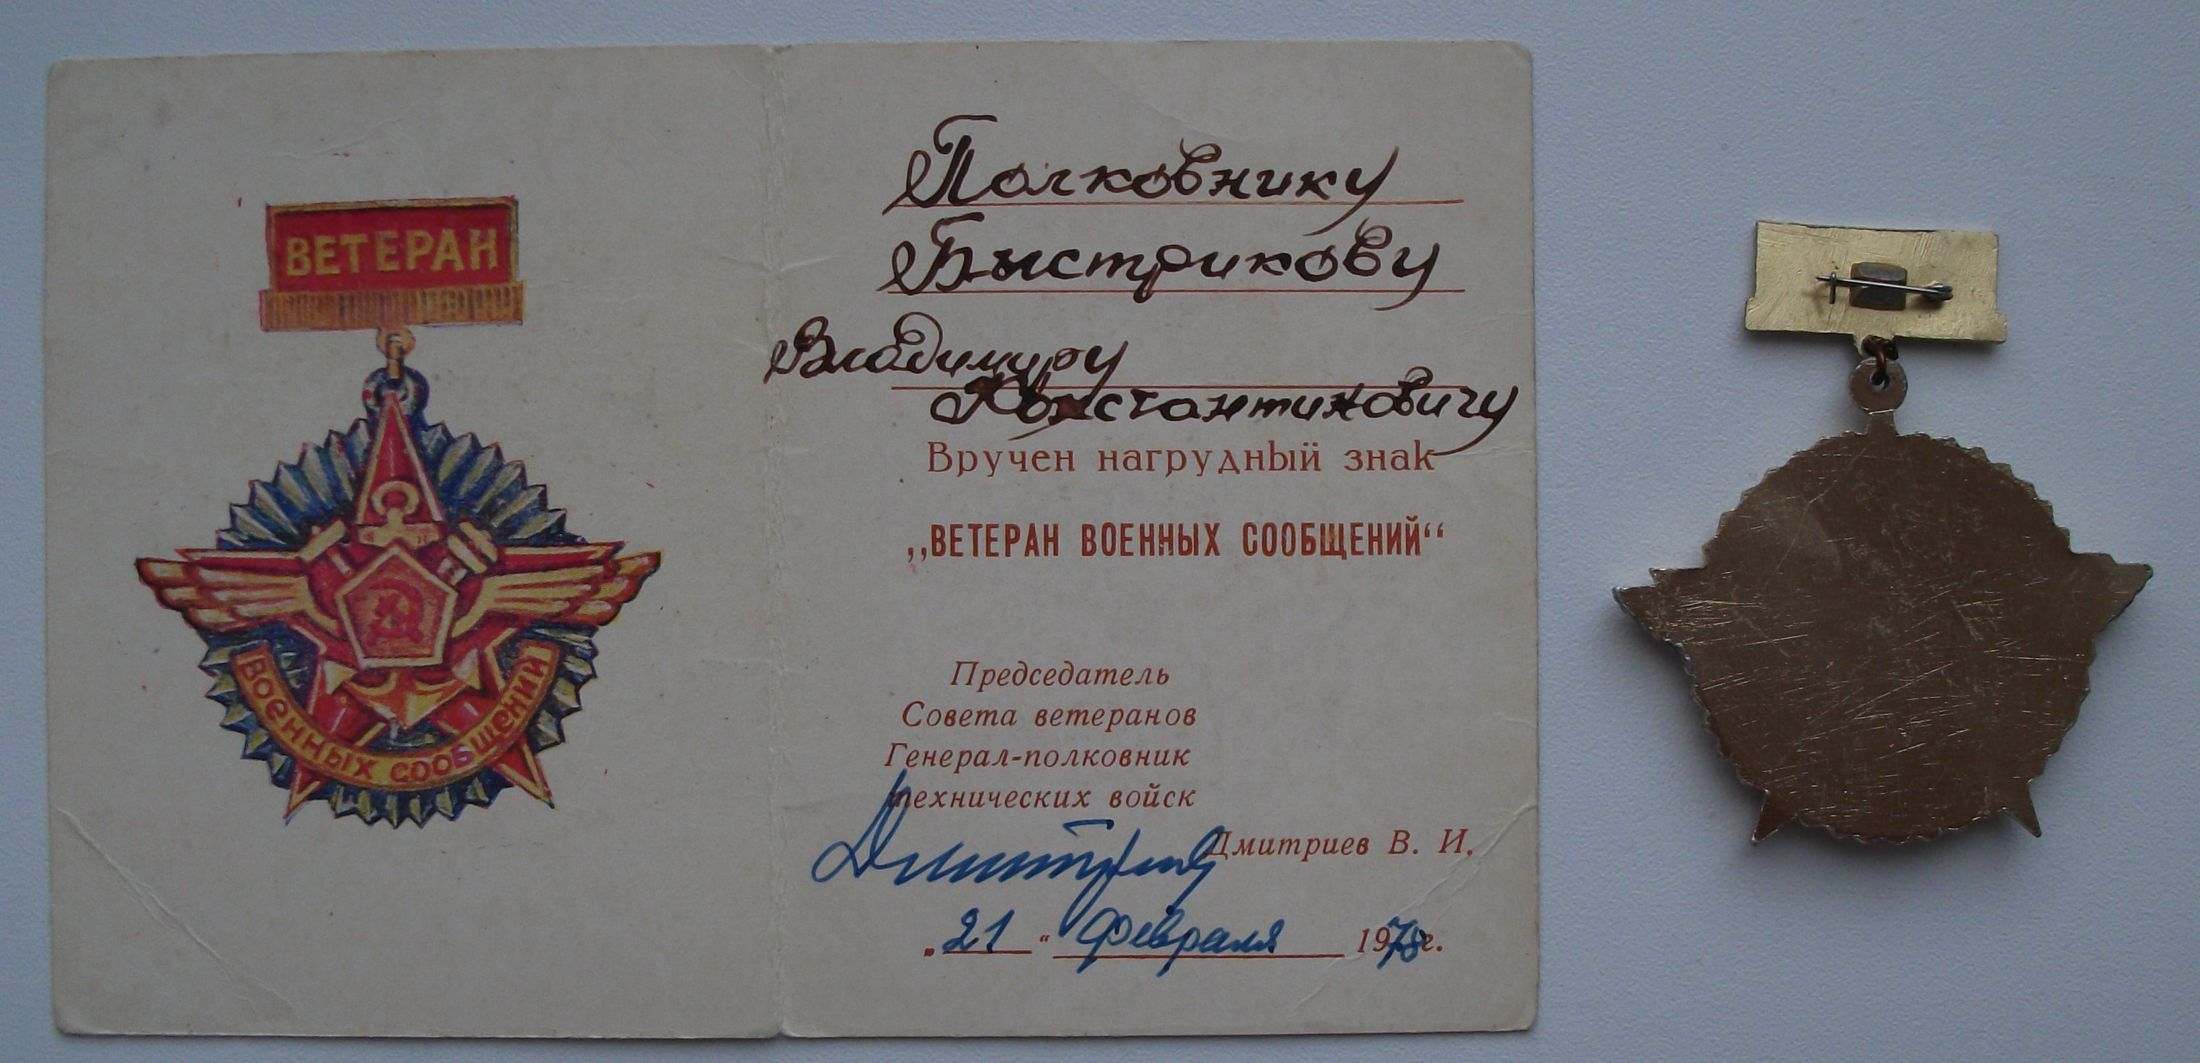 ВЕТЕРАН
ВОЕННЫХ СООБЩЕНИЙ
Полковнику
Быстрикову
Владимиру
Константиновичу
Вручен нагрудный знак
„ВЕТЕРАН ВОЕННЫХ СООБЩЕНИЙ“
Председатель
Совета ветеранов
Генерал-полковник
технических войск
Дмитриев В. И.
„21“ февраля 1978г.